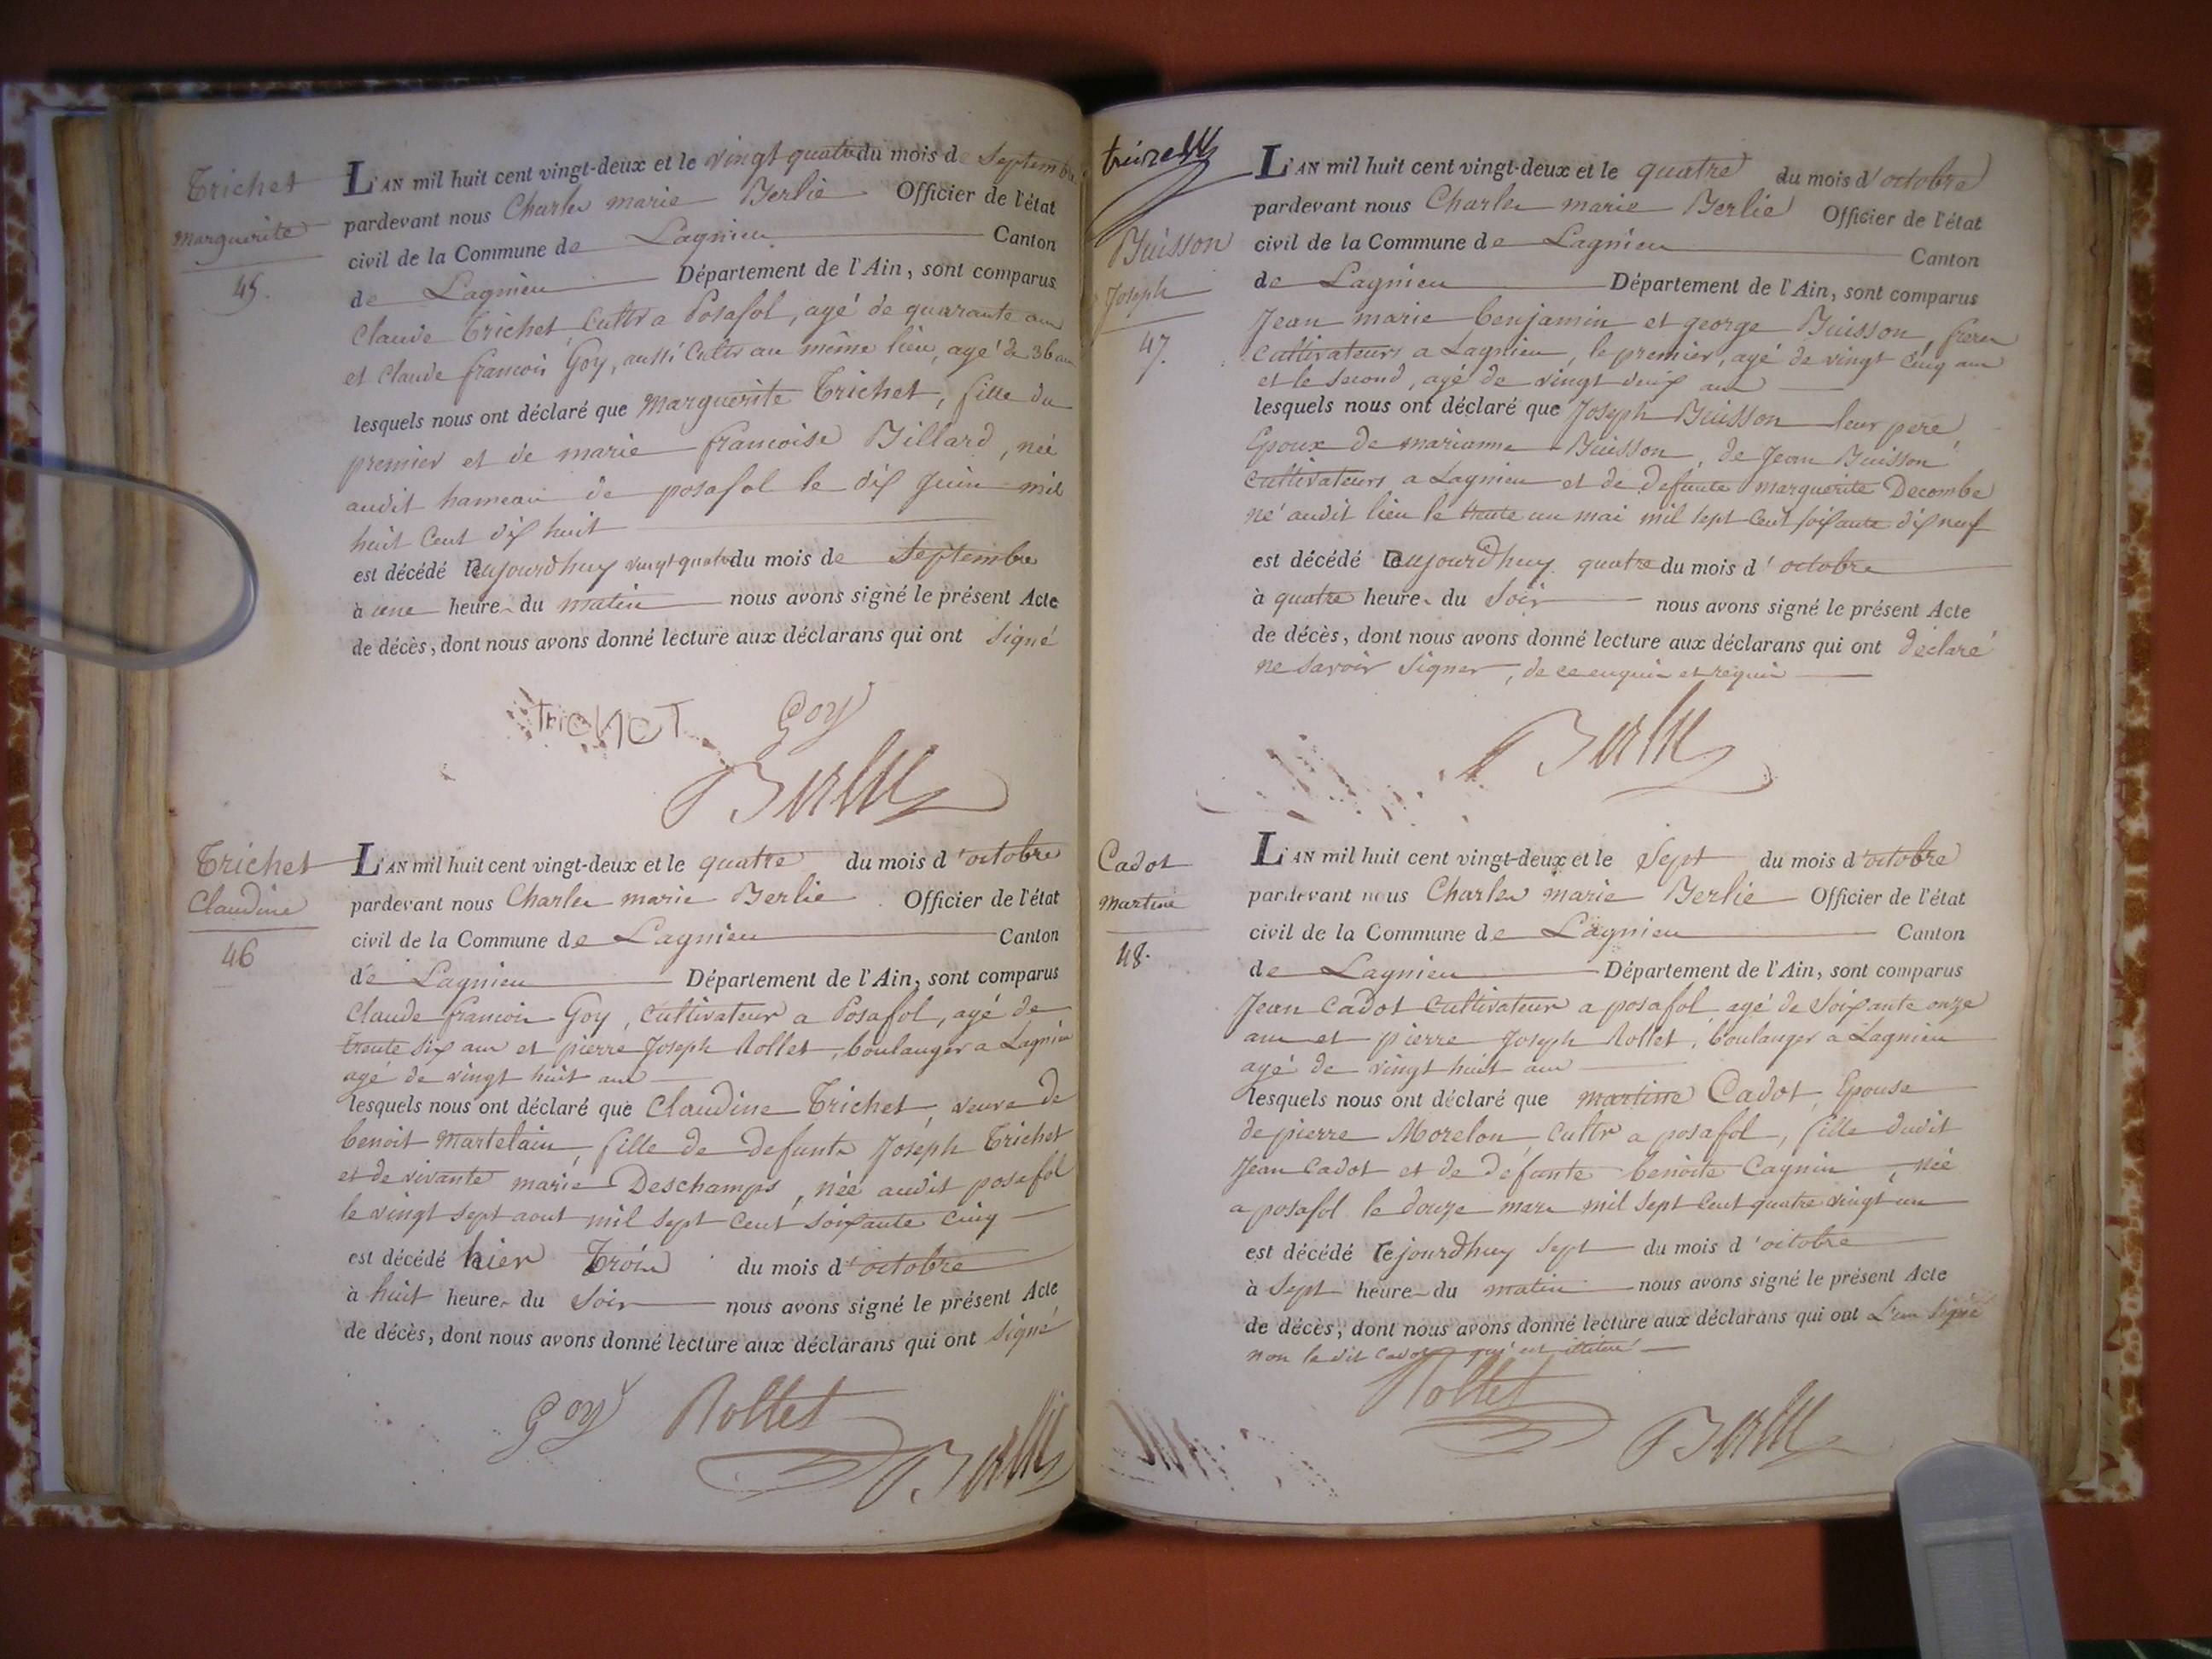 Trichet
Marguerite
45.
L'AN mil huit cent vingt-deux et le vingt quatre du mois de Septembre
pardevant nous Charles marie Berlie Officier de l'état
civil de la Commune de Lagnieu Canton
de Lagnieu Département de l'Ain, sont comparus
Claude Trichet Cultr a Posafol, agé de quarante ans
et Claude francois Goy, aussi Cultr au même lieu, agé de 36 ans
lesquels nous ont déclaré que Marguerite Trichet, fille du
premier et de marie francoise Billard, née
audit hameau de posafol le dix Juin mil
huit Cent dix huit
est décédé aujourdhuy vingt quatre du mois de Septembre
à une heure du matin nous avons signé le présent Acte
de décès, dont nous avons donné lecture aux déclarans qui ont signé
TricHeT Goy
Berlie
Trichet
Claudine
46
L'AN mil huit cent vingt-deux et le quatre du mois d'octobre
pardevant nous Charles marie Berlie Officier de l'état
civil de la Commune de Lagnieu Canton
de Lagnieu Département de l'Ain, sont comparus
Claude francois Goy, Cultivateur a Posafol, agé de
trente six ans et pierre Joseph Rollet, boulanger a Lagnieu
agé de vingt huit ans
lesquels nous ont déclaré que Claudine Trichet, veuve de
benoit Martelain, fille de defunte Joseph Trichet
et de vivante marie Deschamps, née audit posafol
le vingt sept aout mil sept Cent soixante Cinq
est décédé hier Trois du mois d'octobre
à huit heure du Soir nous avons signé le présent Acte
de décès, dont nous avons donné lecture aux déclarans qui ont signé
Goy Rollet
Berlie
Buisson
Joseph
47.
L'AN mil huit cent vingt-deux et le quatre du mois d'octobre
pardevant nous Charles marie Berlie Officier de l'état
civil de la Commune de Lagnieu Canton
de Lagnieu Département de l'Ain, sont comparus
Jean marie benjamin et george Buisson, freres
Cultivateurs a Lagnieu, le premier, agé de vingt Cinq ans
et le second, agé de vingt deux ans
lesquels nous ont déclaré que Joseph Buisson leur pere,
Epoux de marianne Buisson, de Jean Buisson
Cultivateurs a Lagnieu et de defunte Marguerite Decombe
né audit lieu le trente un mai mil sept Cent soixante dix neuf
est décédé aujourdhuy quatre du mois d'octobre
à quatre heure du Soir nous avons signé le présent Acte
de décès, dont nous avons donné lecture aux déclarans qui ont déclaré
ne savoir signer, de ce enquis et requis
Berlie
Cadot
Martine
48.
L'AN mil huit cent vingt-deux et le Sept du mois d'octobre
pardevant nous Charles marie Berlie Officier de l'état
civil de la Commune de Lagnieu Canton
de Lagnieu Département de l'Ain, sont comparus
Jean Cadot Cultivateur a posafol agé de soixante onze
ans et pierre Joseph Rollet, boulanger a Lagnieu
agé de vingt huit ans
lesquels nous ont déclaré que martine Cadot, Epouse
de pierre Morelon, Cultr a posafol, fille dudit
Jean Cadot et de defunte benoite Cagnin, née
a posafol le douze mars mil sept Cent quatre vingt un
est décédé cejourdhuy Sept du mois d'octobre
à Sept heure du matin nous avons signé le présent Acte
de décès, dont nous avons donné lecture aux déclarans qui ont L'un signé
non le dit Cadot qui est
Rollet
Berlie